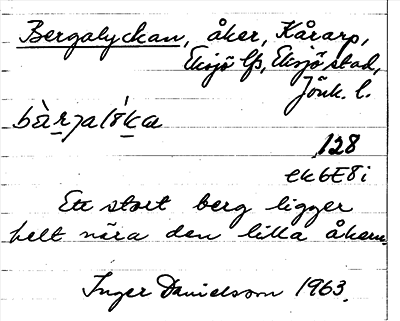 Bergalyckan, åker, Kårarp,
Eksjö lfs, Eksjö stad,
Jönk. l.
128
ek6E8i
Ett stort berg ligger
helt nära den lilla åkern.
Inger Danielsson 1963.